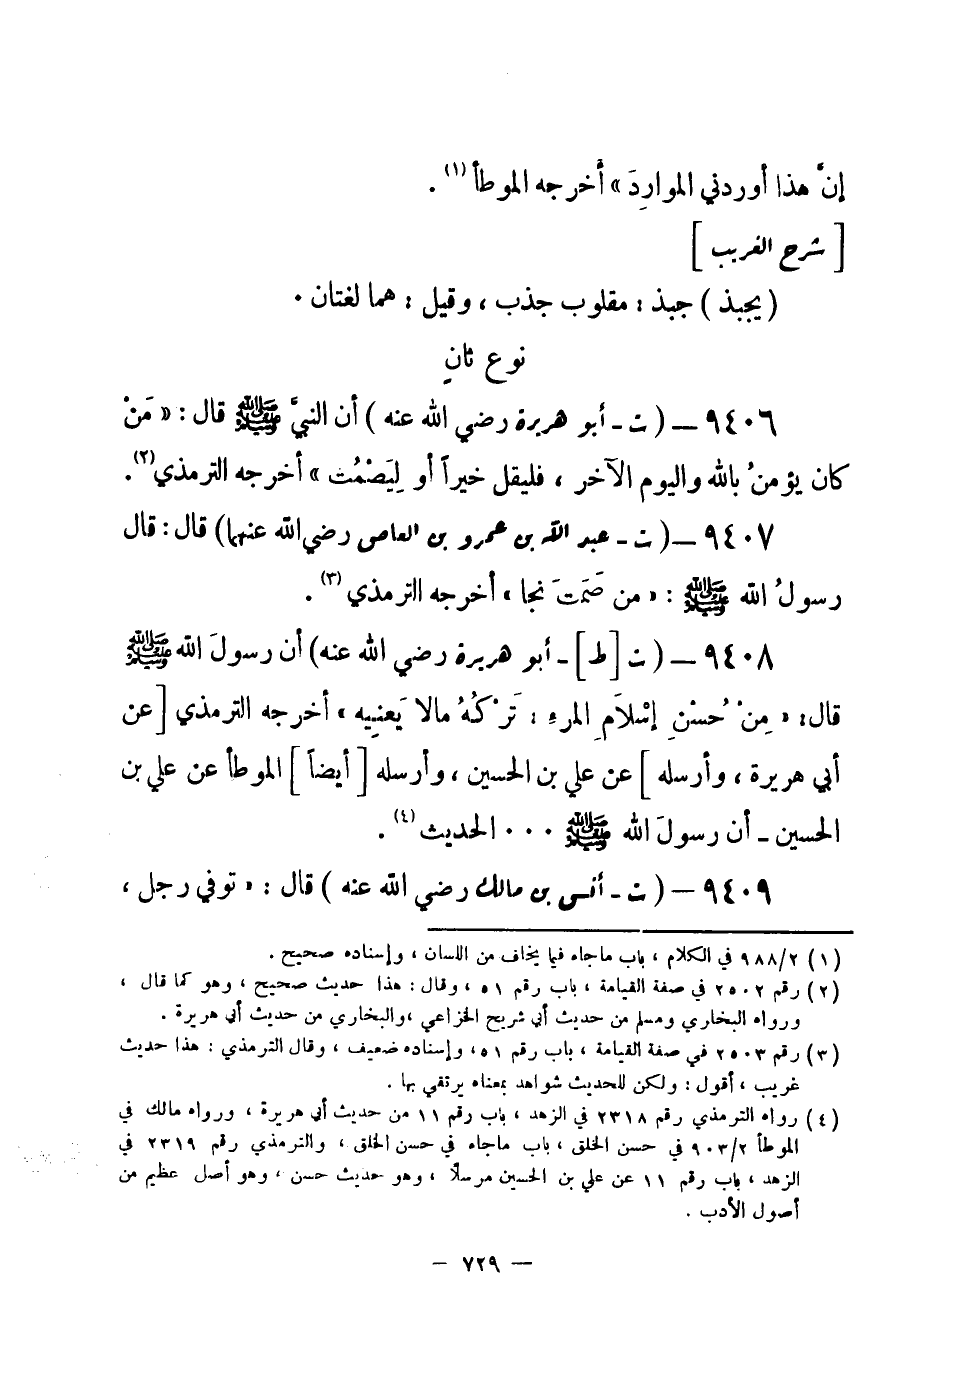 إنَّ هذا أوردني المواردَ » أخرجه الموطأ (١) .
[ شرح الغريب ]
( يجبذ ) جبذ : مقلوب جذب ، وقيل : هما لغتان .
نوع ثانٍ
٩٤٠٦ — ( ت - أبو هريرة رضي الله عنه ) أن النبيَّ ﷺ قال : « مَنْ
كان يؤمنُ بالله واليوم الآخر ، فليقل خيراً أو لِيَصْمُت » أخرجه الترمذي (٢) .
٩٤٠٧ — ( ت - عبد الله بن عمرو بن العاص رضي الله عنهما ) قال : قال
رسولُ الله ﷺ : « من صَمَتَ نجا » أخرجه الترمذي (٣) .
٩٤٠٨ — ( ت [ط] - أبو هريرة رضي الله عنه ) أن رسولَ الله ﷺ
قال : « مِنْ حُسْنِ إِسْلَامِ المرءِ : تَرْكُهُ مالا يَعنِيه » أخرجه الترمذي [ عن
أبي هريرة ، وأرسله ] عن علي بن الحسين ، وأرسله [ أيضاً ] الموطأ عن علي بن
الحسين - أن رسولَ الله ﷺ ... الحديث (٤) .
٩٤٠٩ — ( ت - أنس بن مالك رضي الله عنه ) قال : « توفي رجل ،
(١) ٩٨٨/٢ في الكلام ، باب ماجاء فيما يخاف من اللسان ، وإسناده صحيح .
(٢) رقم ٢٥٠٢ في صفة القيامة ، باب رقم ٥١ ، وقال : هذا حديث صحيح ، وهو كما قال ،
ورواه البخاري ومسلم من حديث أبي شريح الخزاعي ، والبخاري من حديث أبي هريرة .
(٣) رقم ٢٥٠٣ في صفة القيامة ، باب رقم ٥١ ، وإسناده ضعيف ، وقال الترمذي : هذا حديث
غريب ، أقول : ولكن للحديث شواهد بمعناه يرتقي بها .
(٤) رواه الترمذي رقم ٢٣١٨ في الزهد ، باب رقم ١١ من حديث أبي هريرة ، ورواه مالك في
الموطأ ٩٠٣/٢ في حسن الخلق ، باب ماجاء في حسن الخلق ، والترمذي رقم ٢٣١٩ في
الزهد ، باب رقم ١١ عن علي بن الحسين مرسلاً ، وهو حديث حسن ، وهو أصل عظيم من
أصول الأدب .
— ٧٢٩ —